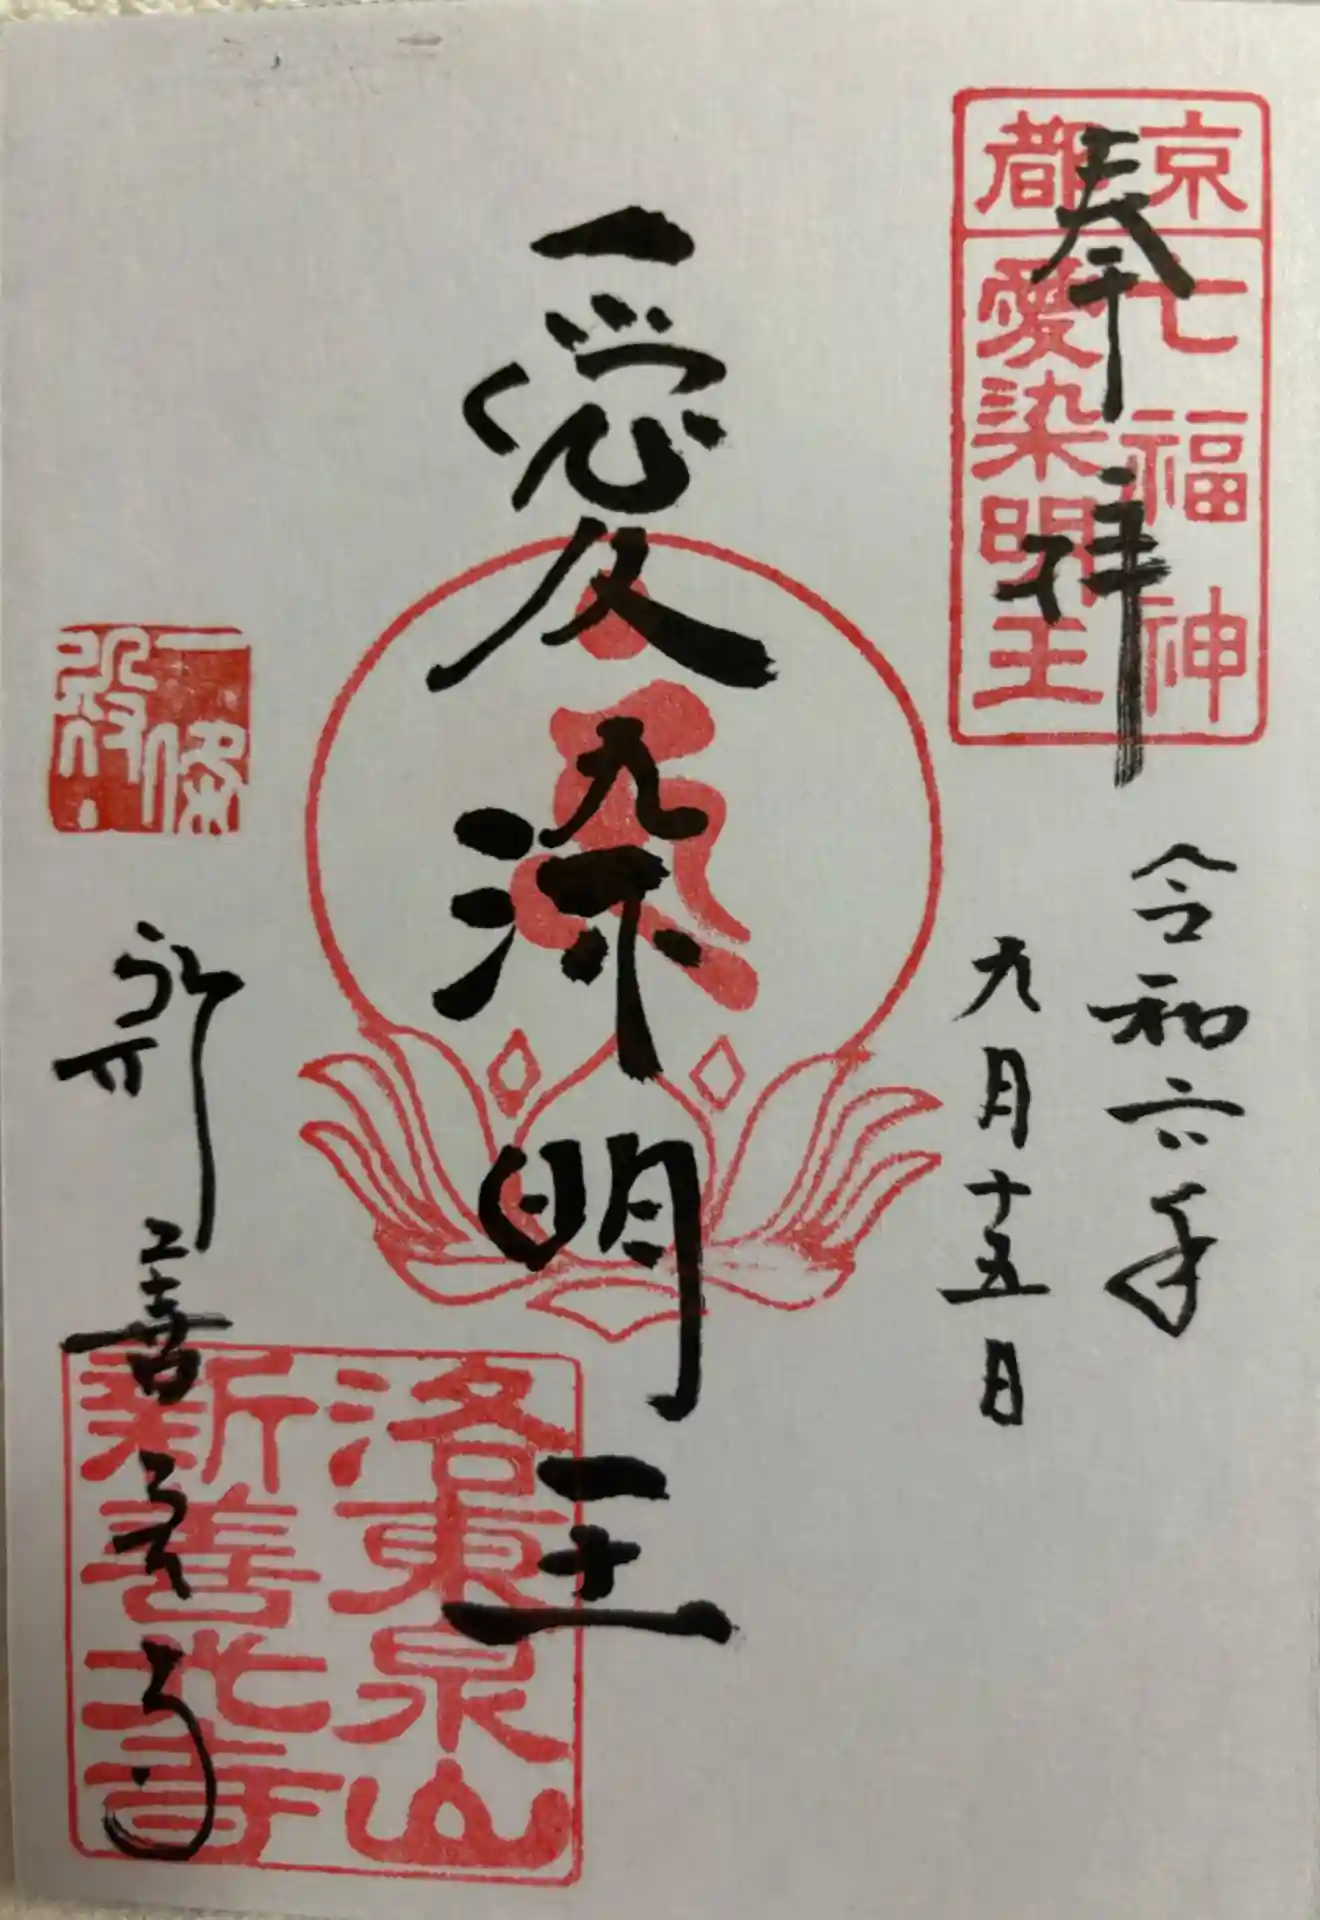 京都
七福神
愛染明王
奉拝
令和六年
九月十五日
愛染明王
新善光寺
洛東泉山
新善光寺